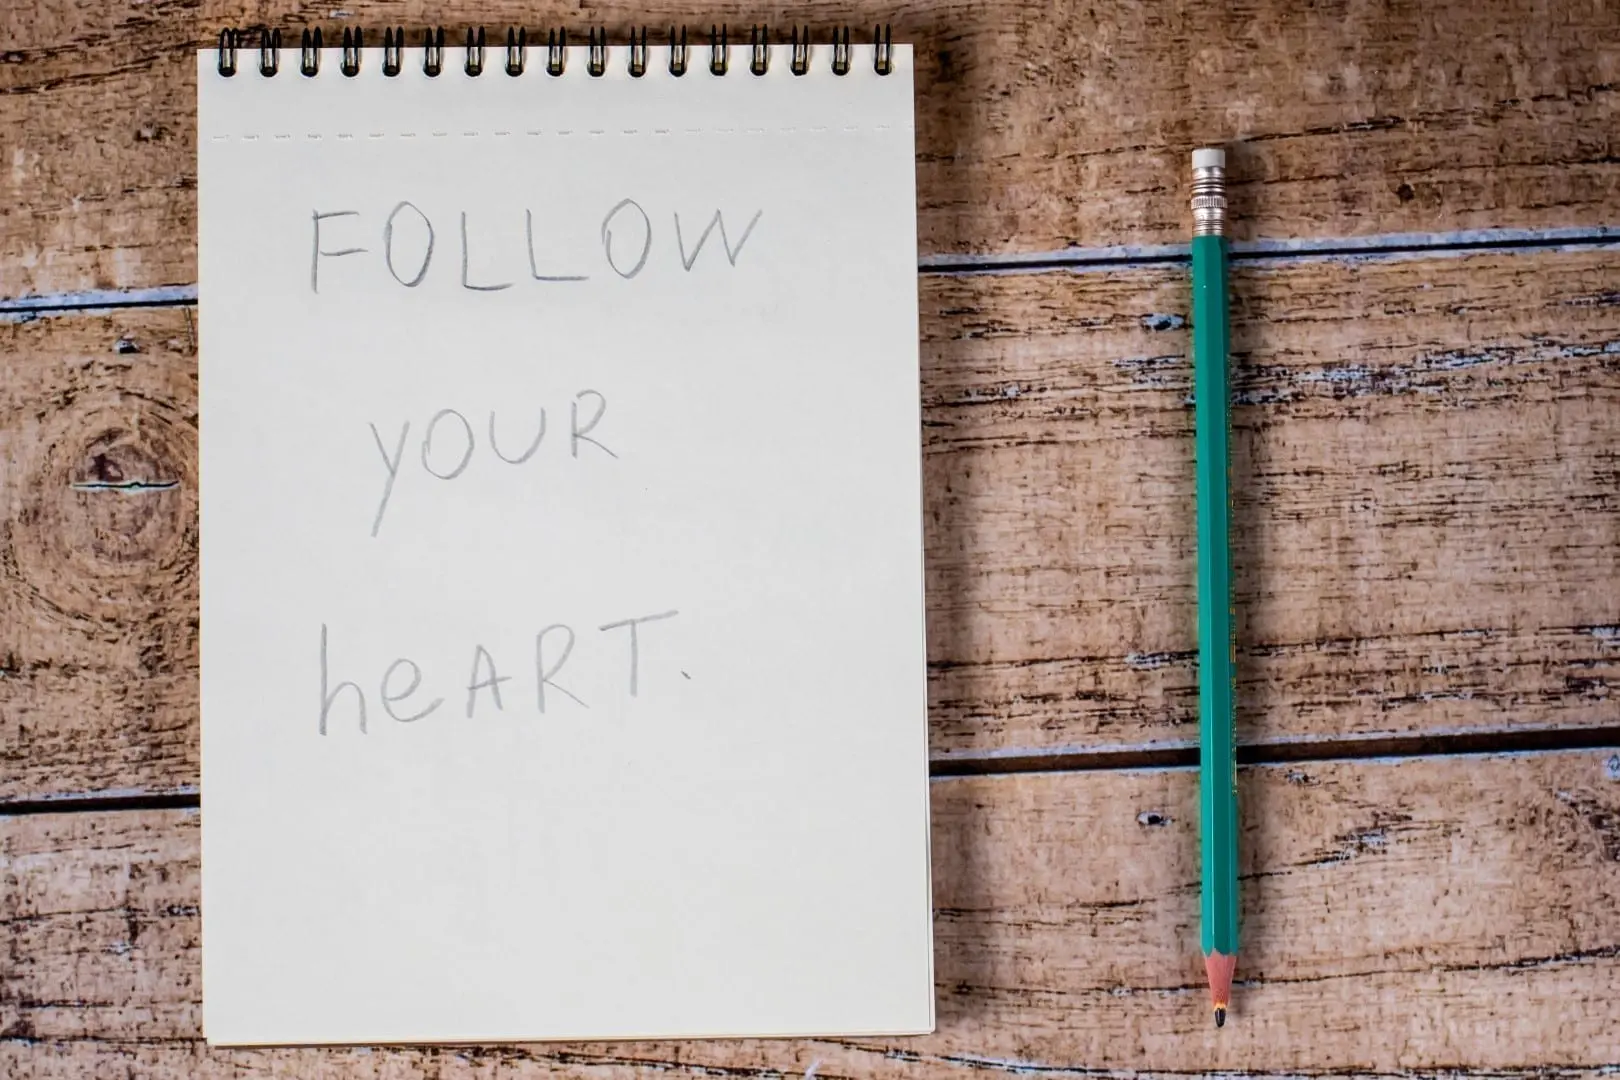 FOLLOW
YOUR
heART.